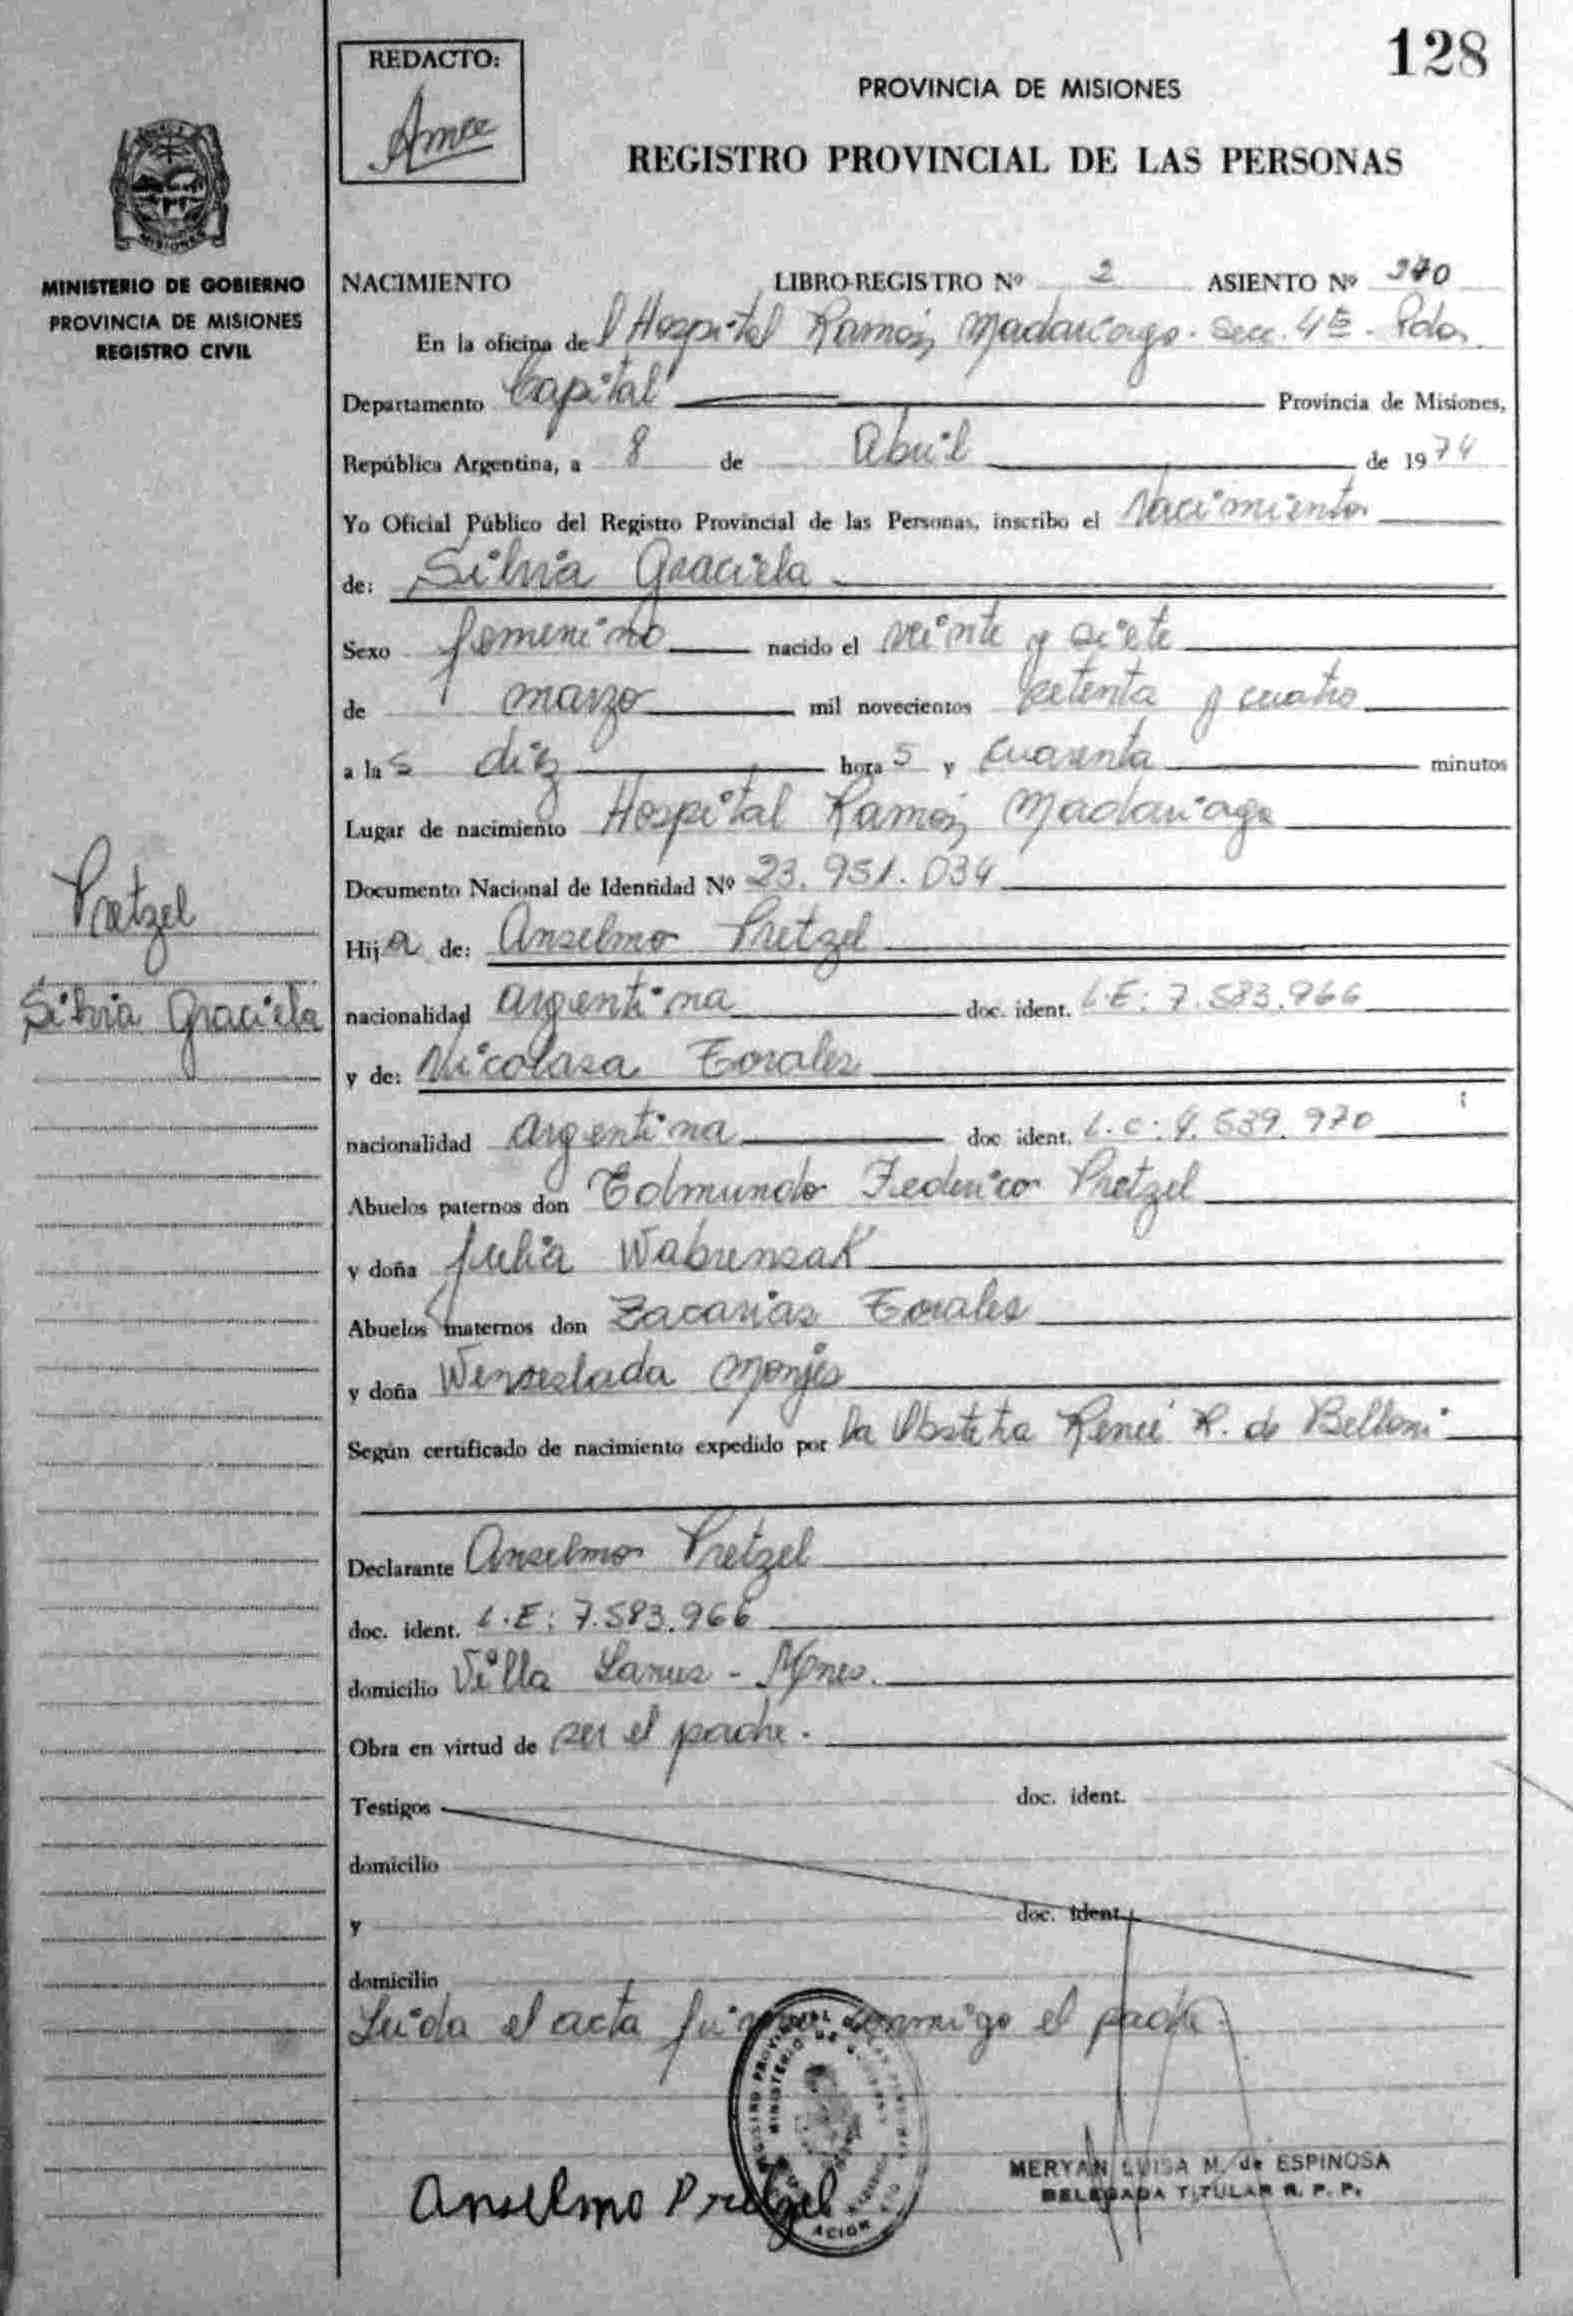 128
REDACTO:
PROVINCIA DE MISIONES
REGISTRO PROVINCIAL DE LAS PERSONAS
MISIONES
MINISTERIO DE GOBIERNO
PROVINCIA DE MISIONES
REGISTRO CIVIL
NACIMIENTO LIBRO-REGISTRO Nº 2 ASIENTO Nº 370
En la oficina del Hospital Ramón Madariaga. Secc. 4ta. Pdas.
Departamento Capital Provincia de Misiones,
República Argentina, a 8 de Abril de 1974
Yo Oficial Público del Registro Provincial de las Personas, inscribo el Nacimiento
de: Silvia Graciela
Sexo femenino nacido el veinte y siete
de marzo mil novecientos setenta y cuatro
a las diez horas y cuarenta minutos
Lugar de nacimiento Hospital Ramón Madariaga
Documento Nacional de Identidad Nº 23.951.034
Pretzel
Silvia Graciela
Hija de: Anselmo Pretzel
nacionalidad argentina doc. ident. L.E: 7.583.966
y de: Nicolasa Torales
nacionalidad argentina doc ident. L.C: 4.539.970
Abuelos paternos don Edmundo Federico Pretzel
y doña Julia Wabrensak
Abuelos maternos don Zacarias Torales
y doña Wenseslada Monjes
Según certificado de nacimiento expedido por la Obstetra Reneé R. de Belloni
Declarante Anselmo Pretzel
doc. ident. L.E: 7.583.966
domicilio Villa Lanus - Mnes.
Obra en virtud de ser el padre.
Testigos doc. ident.
domicilio
y doc. ident.
domicilio
Leida el acta firma conmigo el padre.
Anselmo Pretzel
MERYAN LUISA M. de ESPINOSA
DELEGADA TITULAR R. P. P.